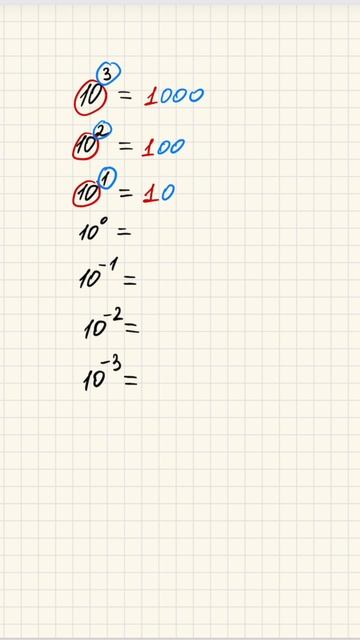 10³ = 1000
10² = 100
10¹ = 10
10⁰ =
10⁻¹ =
10⁻² =
10⁻³ =